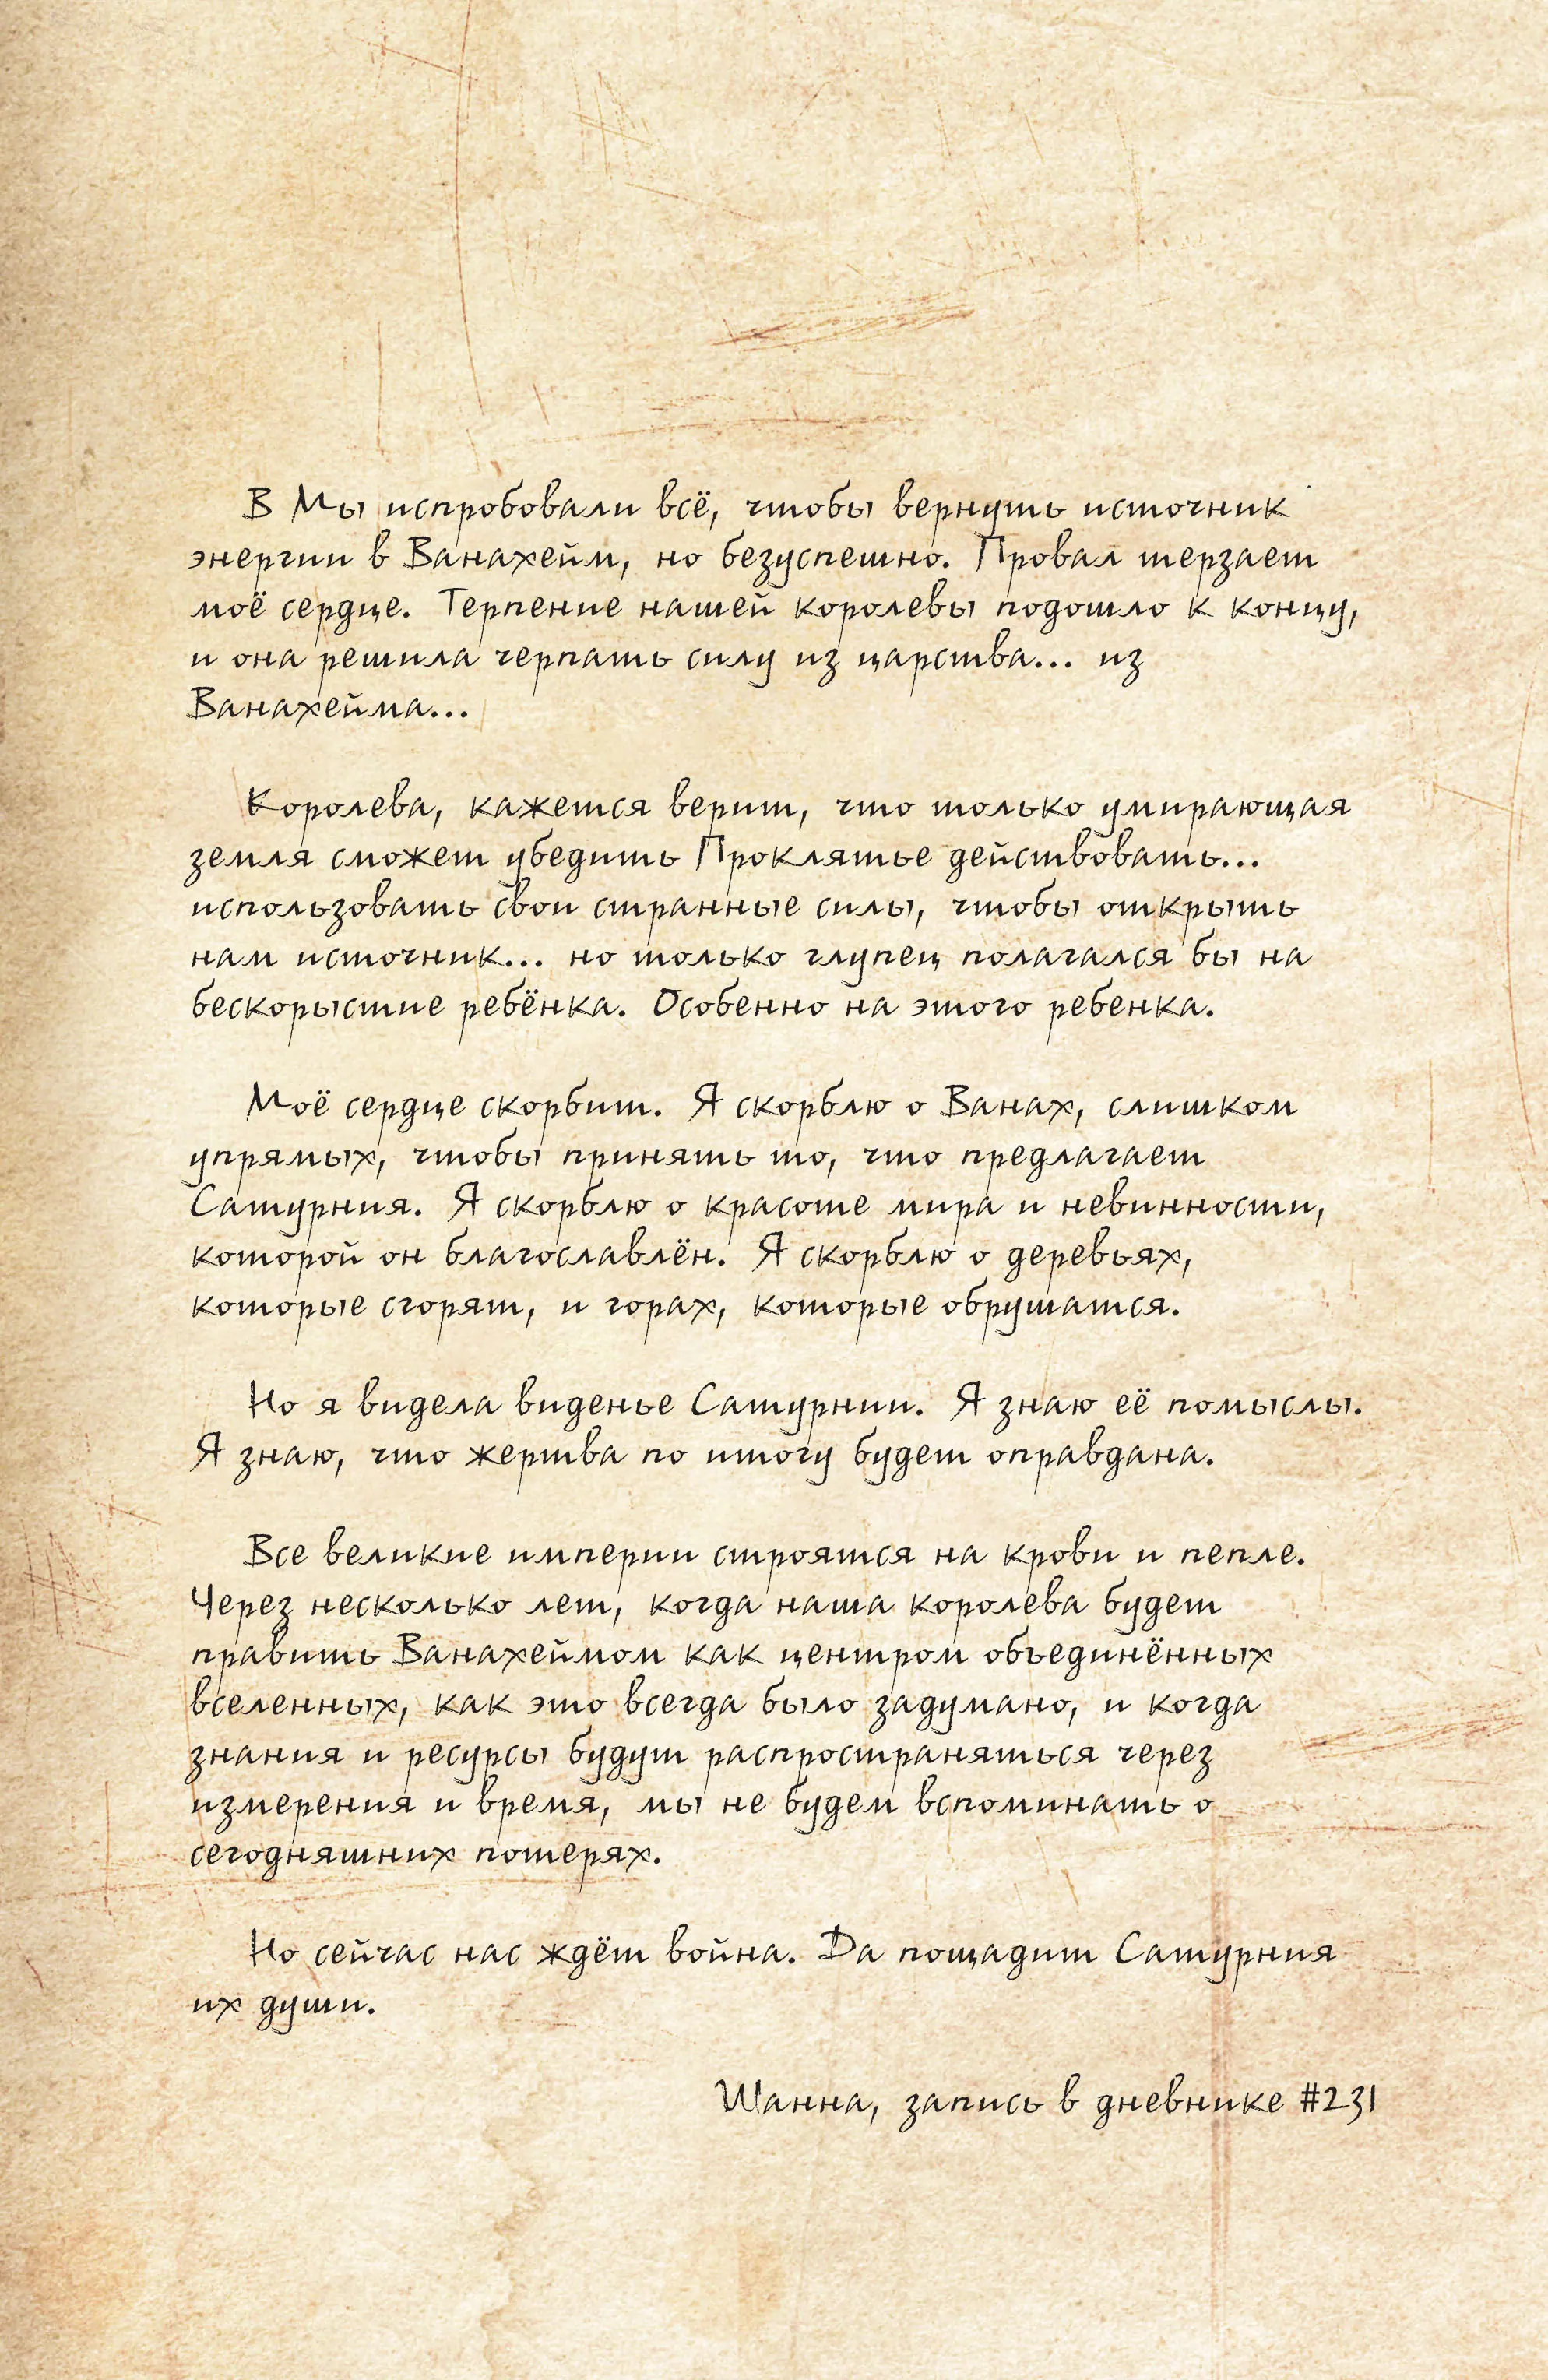 В Мы испробовали всё, чтобы вернуть источник
энергии в Ванахейм, но безуспешно. Провал терзает
моё сердце. Терпение нашей королевы подошло к концу,
и она решила черпать силу из царства... из
Ванахейма...
Королева, кажется верит, что только умирающая
земля сможет убедить Проклятье действовать...
использовать свои странные силы, чтобы открыть
нам источник... но только глупец полагался бы на
бескорыстие ребёнка. Особенно на этого ребенка.
Моё сердце скорбит. Я скорблю о Ванах, слишком
упрямых, чтобы принять то, что предлагает
Сатурния. Я скорблю о красоте мира и невинности,
которой он благославлён. Я скорблю о деревьях,
которые сгорят, и горах, которые обрушатся.
Но я видела виденье Сатурнии. Я знаю её помыслы.
Я знаю, что жертва по итогу будет оправдана.
Все великие империи строятся на крови и пепле.
Через несколько лет, когда наша королева будет
править Ванахеймом как центром объединённых
вселенных, как это всегда было задумано, и когда
знания и ресурсы будут распространяться через
измерения и время, мы не будем вспоминать о
сегодняшних потерях.
Но сейчас нас ждёт война. Да пощадит Сатурния
их души.
Шанна, запись в дневнике #231